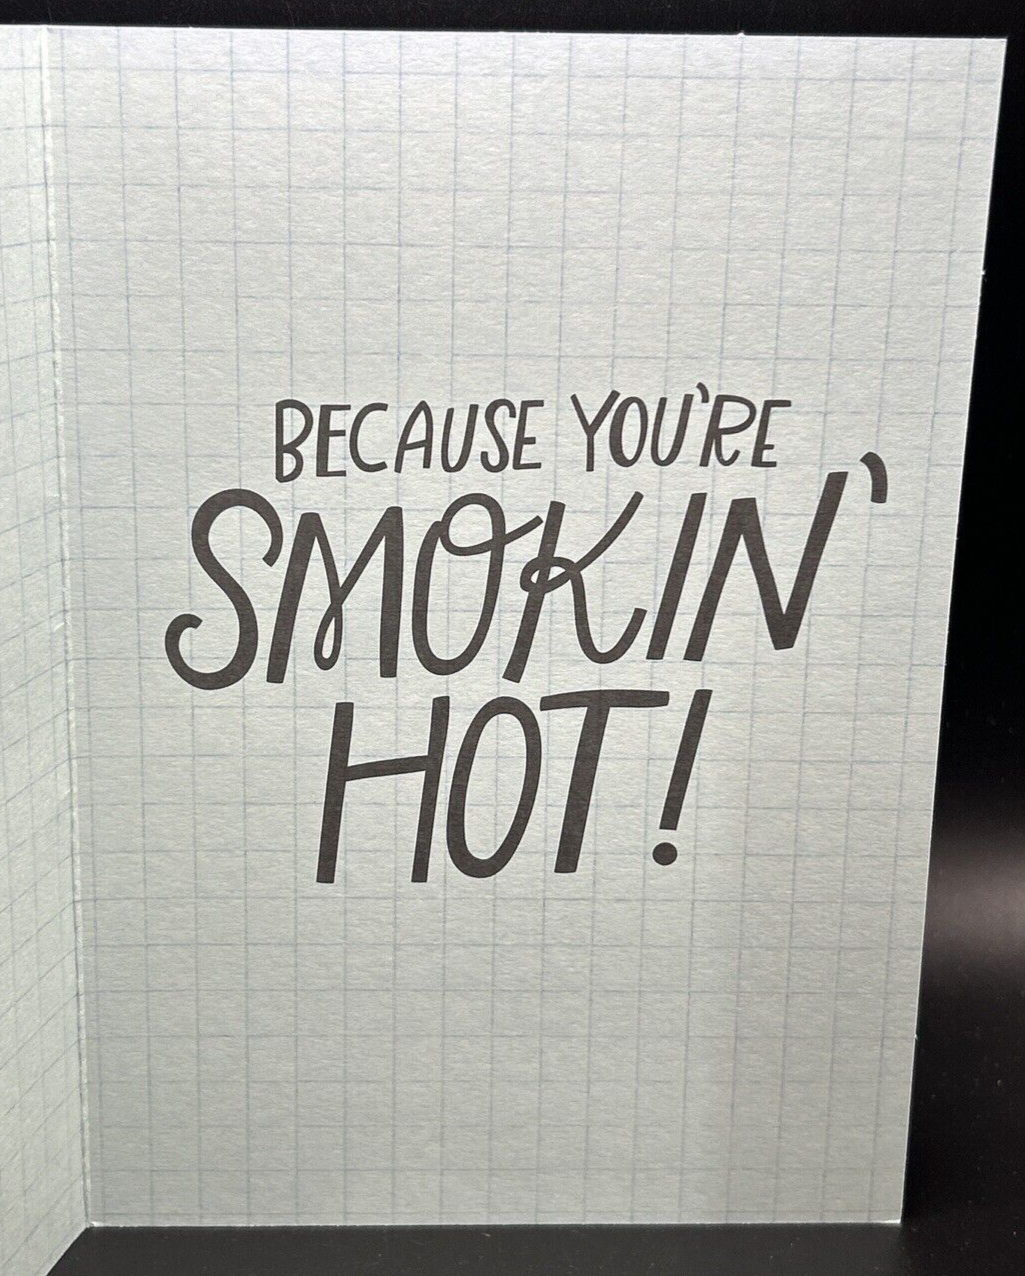 BECAUSE YOU'RE
SMOKIN'
HOT!